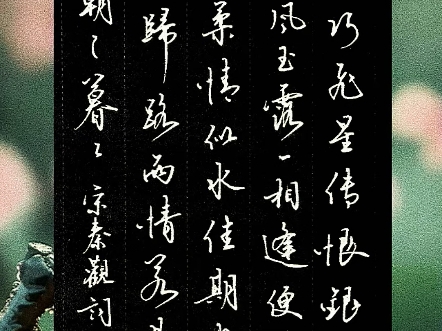 巧飛星传恨銀
风玉露一相逢便
柔情似水佳期
歸路两情若
朝々暮々宋秦觀詞